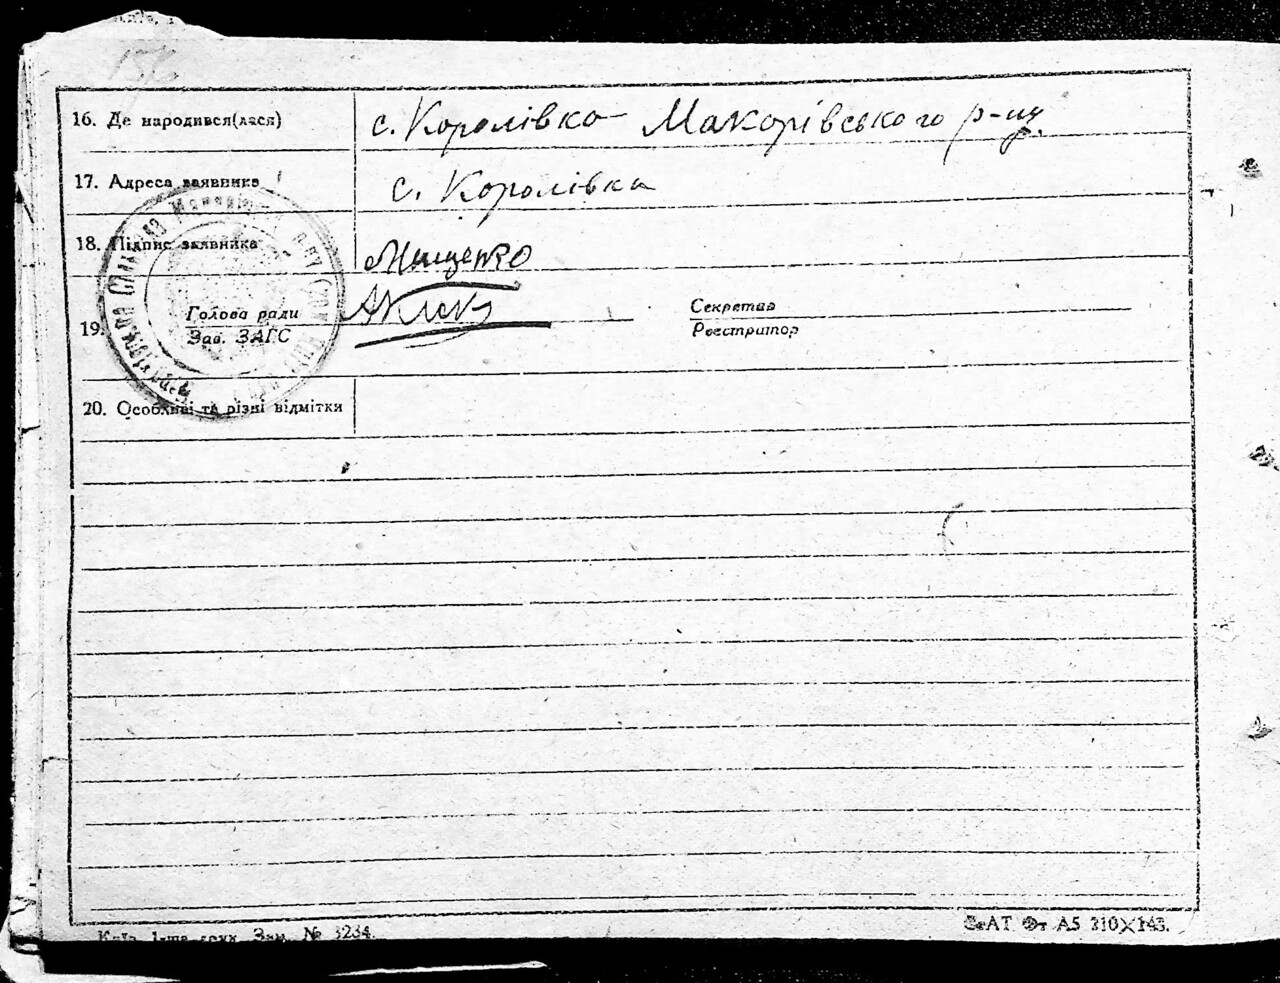 16. Де народився(лася)
с. Королівка Макорівського р-ну
17. Адреса заявника
с. Королівка
18. Підпис заявника
Мищенко
19.
Голова ради
Зав. ЗАГС
Секретар
Реєстратор
20. Особливі та різні відмітки
Зам. № 3234.
А5 210×143.